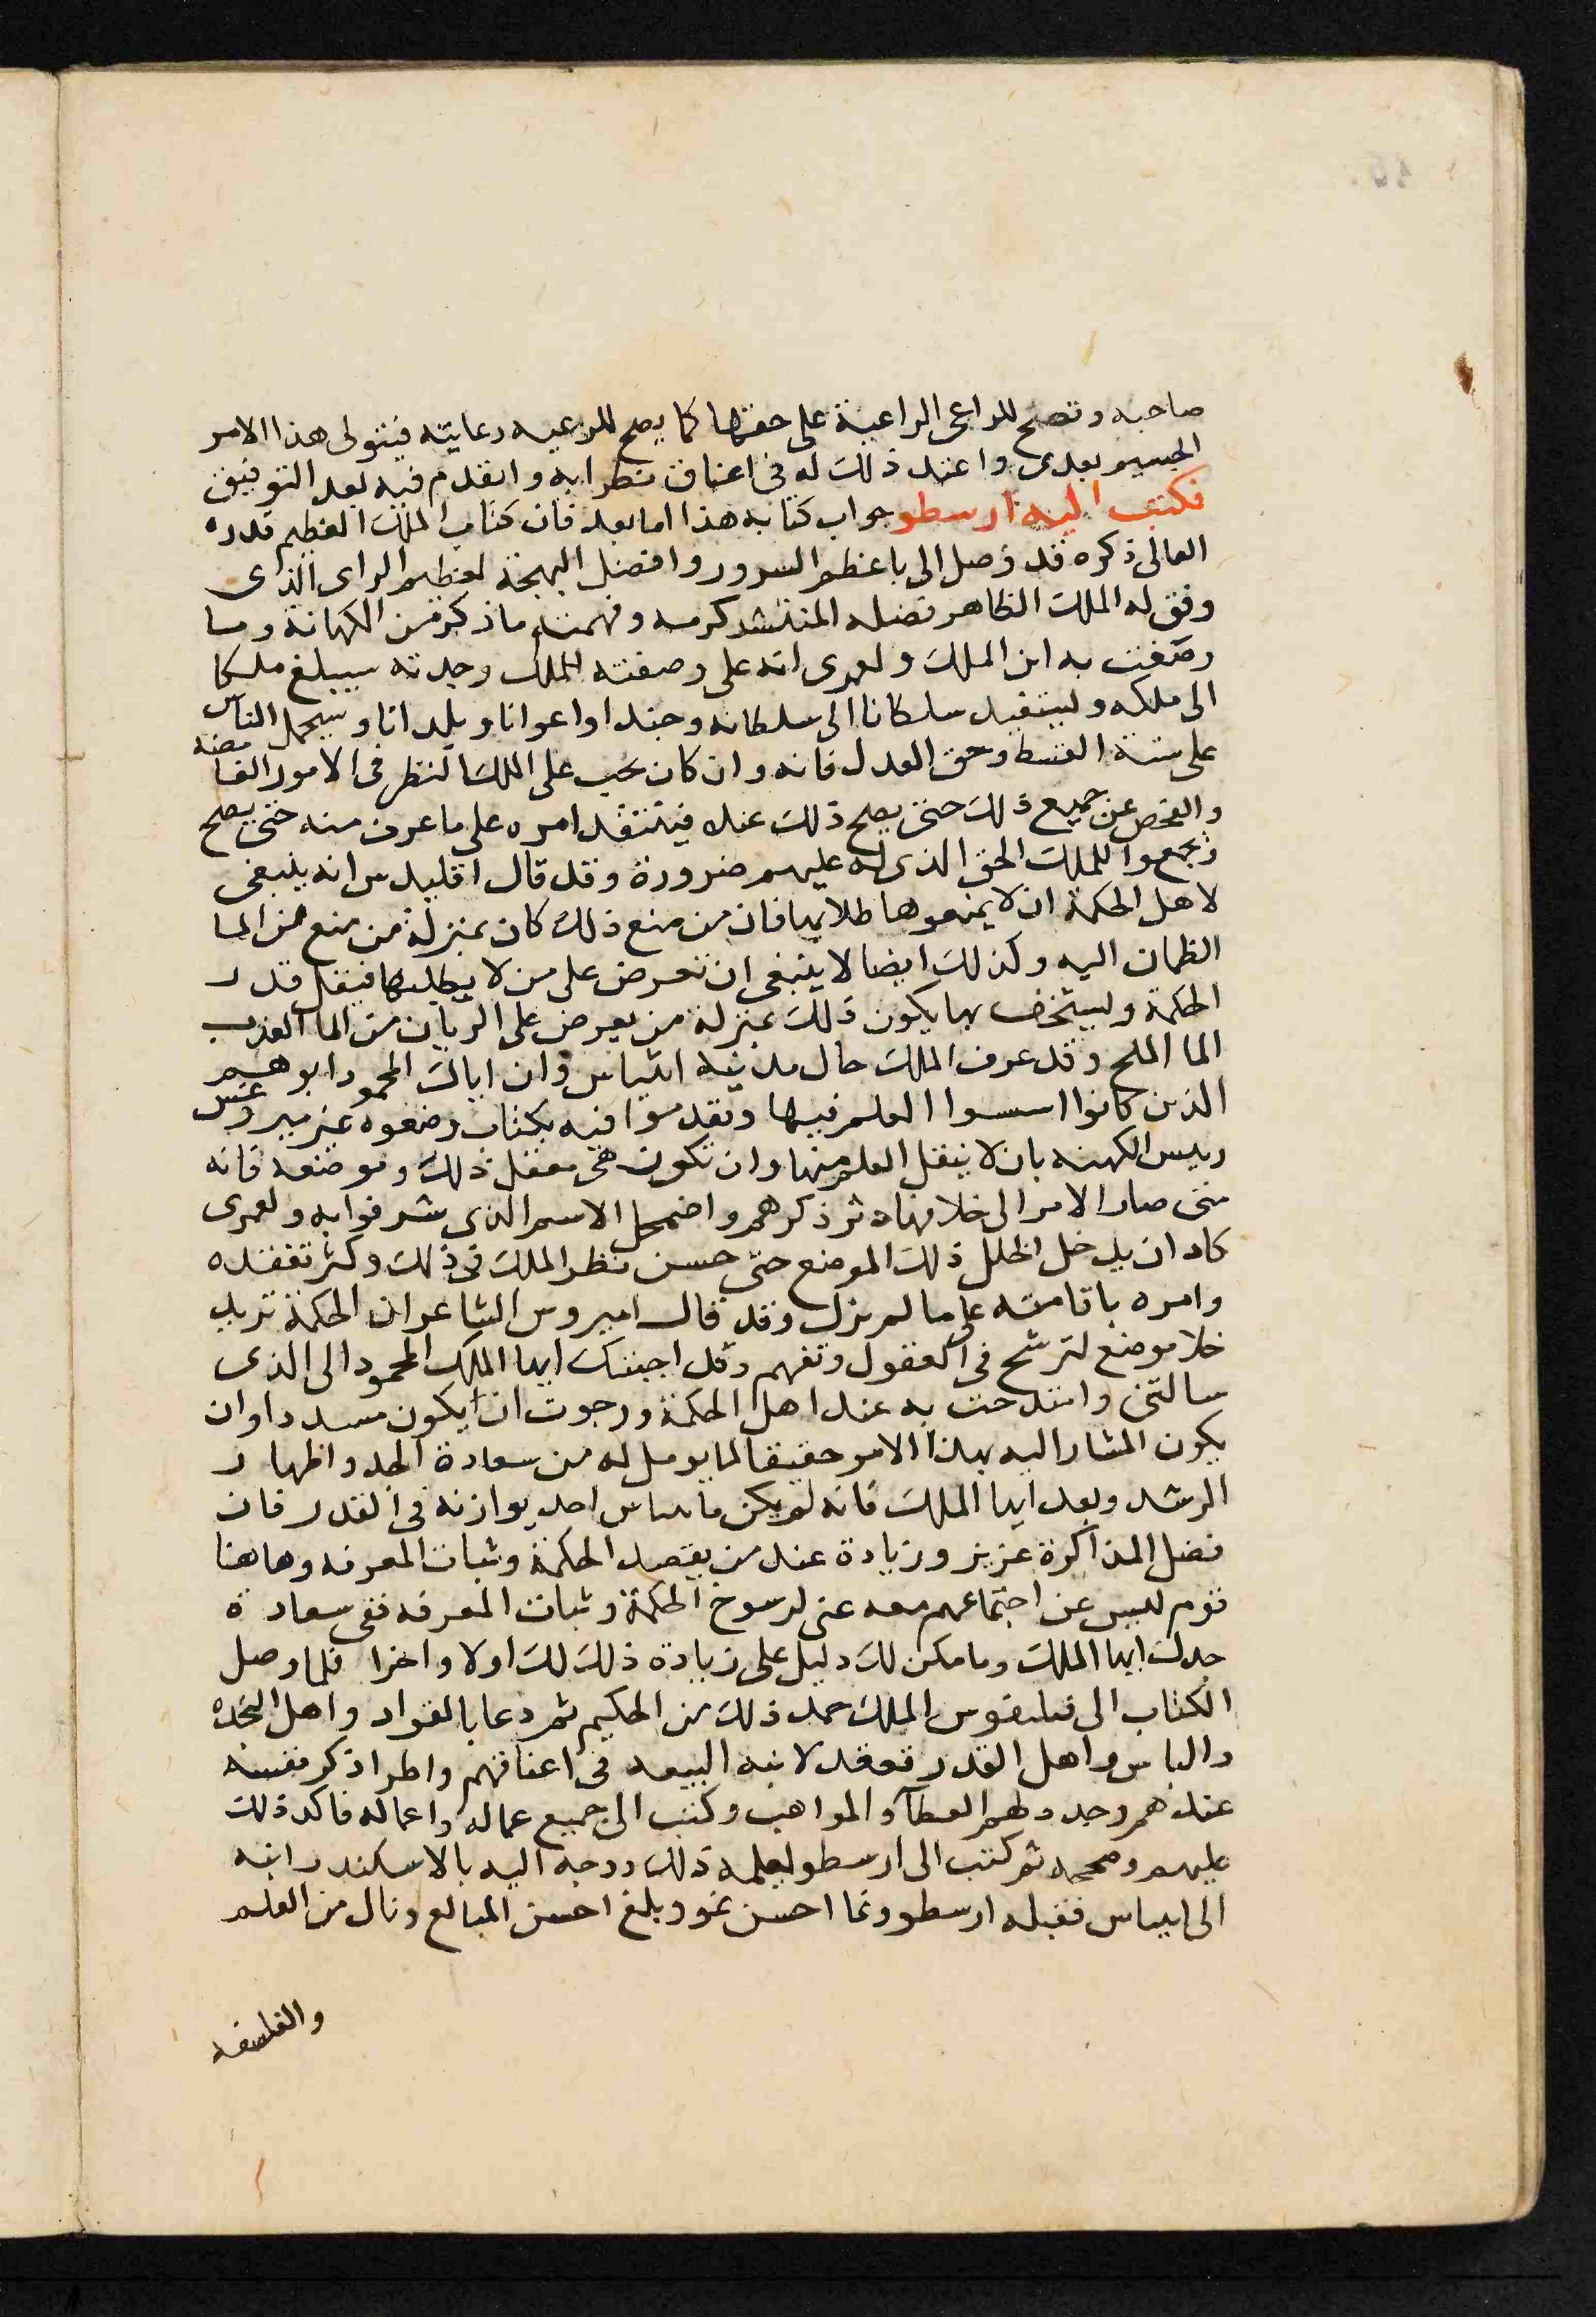 صاحبه وتصح للراعى الراعية على حقها كما يصح للرعيه رعايته فيتولى هذا الامر
الجسيم بعدى واعند ذلك له فى اعناق نظرايه واتقدم فيه بعد التوفيق
فكتب اليه ارسطو جواب كتابه هذا اما بعد فان كتاب الملك العظيم قدره
العالى ذكره قد وصل الى باعظم السرور وافضل البهجة لعظيم الراى الذى
وفق له الملك الظاهر فضله المنتشر كرمه وفهمت ما ذكر من الكهانة وما
وصفت به ابن الملك ولعمرى انه على وصفته الملك وجدته سيبلغ ملكا
الى ملكه وليستفيد سلطانا الى سلطانه وجندا واعوانا وبلدانا وسيحمل الناس
على سنة القسط وحق العدل فانه وان كان يجب على الملك النظر فى الامور الغامضه
والفحص عن جميع ذلك حتى يصلح ذلك عنده فيتفقد امره على ما عرف منه حتى يصلح
ويجمعوا للملك الحق الذى له عليهم ضرورة وقد قال اقليدس انه ينبغى
لاهل الحكمة ان لا يمنعوها طلابها فان من منع ذلك كان بمنزلة من منع من الما
الظمان اليه وكذلك ايضا لا ينبغى ان تعرض على من لا يطلبها فيقل قدر
الحكمة وليستخف بها يكون ذلك بمنزلة من يعرض على الريان من الما العذب
الما الملح وقد عرف الملك حال مدينة ايتياس وان اباك المحمود ابوهم
الذين كانوا اسسوا العلم فيها وتقدموا فيه بكتاب وضعوه عند ميروغس
رييس الكهنه بان لا ينقل العلم منها وان تكون هى معقل ذلك وموضعه فانه
متى صار الامر الى خلافها دثر ذكرهم واضمحل الاسم الذى شرفوا به ولعمرى
كاد ان يدخل الخلل ذلك الموضع حتى حسن نظر الملك فى ذلك وكثر تفقده
وامره باقامته على ما لم يزل وقد قال اميروس الشاعر ان الحكمة تريد
خلا موضع لترشح فى العقول وتفهم وقد اجبتك ايها الملك المحمود الى الذى
سالتنى وامتدحت به عند اهل الحكمة ورجوت ان يكون مسددا وان
يكون المشار اليه بهذا الامر حقيقا لما يومل له من سعادة الجد واظهار
الرشد وبعد ايها الملك فانه لم يكن احد يوازنه فى القدر فان
فضل المذاكرة عزيز وزيادة عند من يقصد الحكمة وثبات المعرفه وهاهنا
قوم ليس عن اجتماعهم معه غنى لرسوخ الحكمة وثبات المعرفه ففى سعادة
جدك ايها الملك وما مكن لك دليل على زيادة ذلك لك اولا واخرا فلما وصل
الكتاب الى فيلبفوس الملك حمد ذلك من الحكيم ثم دعا بالقواد واهل النجده
والباس واهل القدر فعقد لابنه البيعه فى اعناقهم واطرا ذكر نفسه
عندهم وجدد لهم العطآ والمواهب وكتب الى جميع عماله واعماله فاكد ذلك
عليهم وصححه ثم كتب الى ارسطو ليعلمه ذلك ووجه اليه بالاسكندر ابنه
الى ايتياس فقبله ارسطو ونما احسن نمو وبلغ احسن المبالغ ونال من العلم
والفلسفه